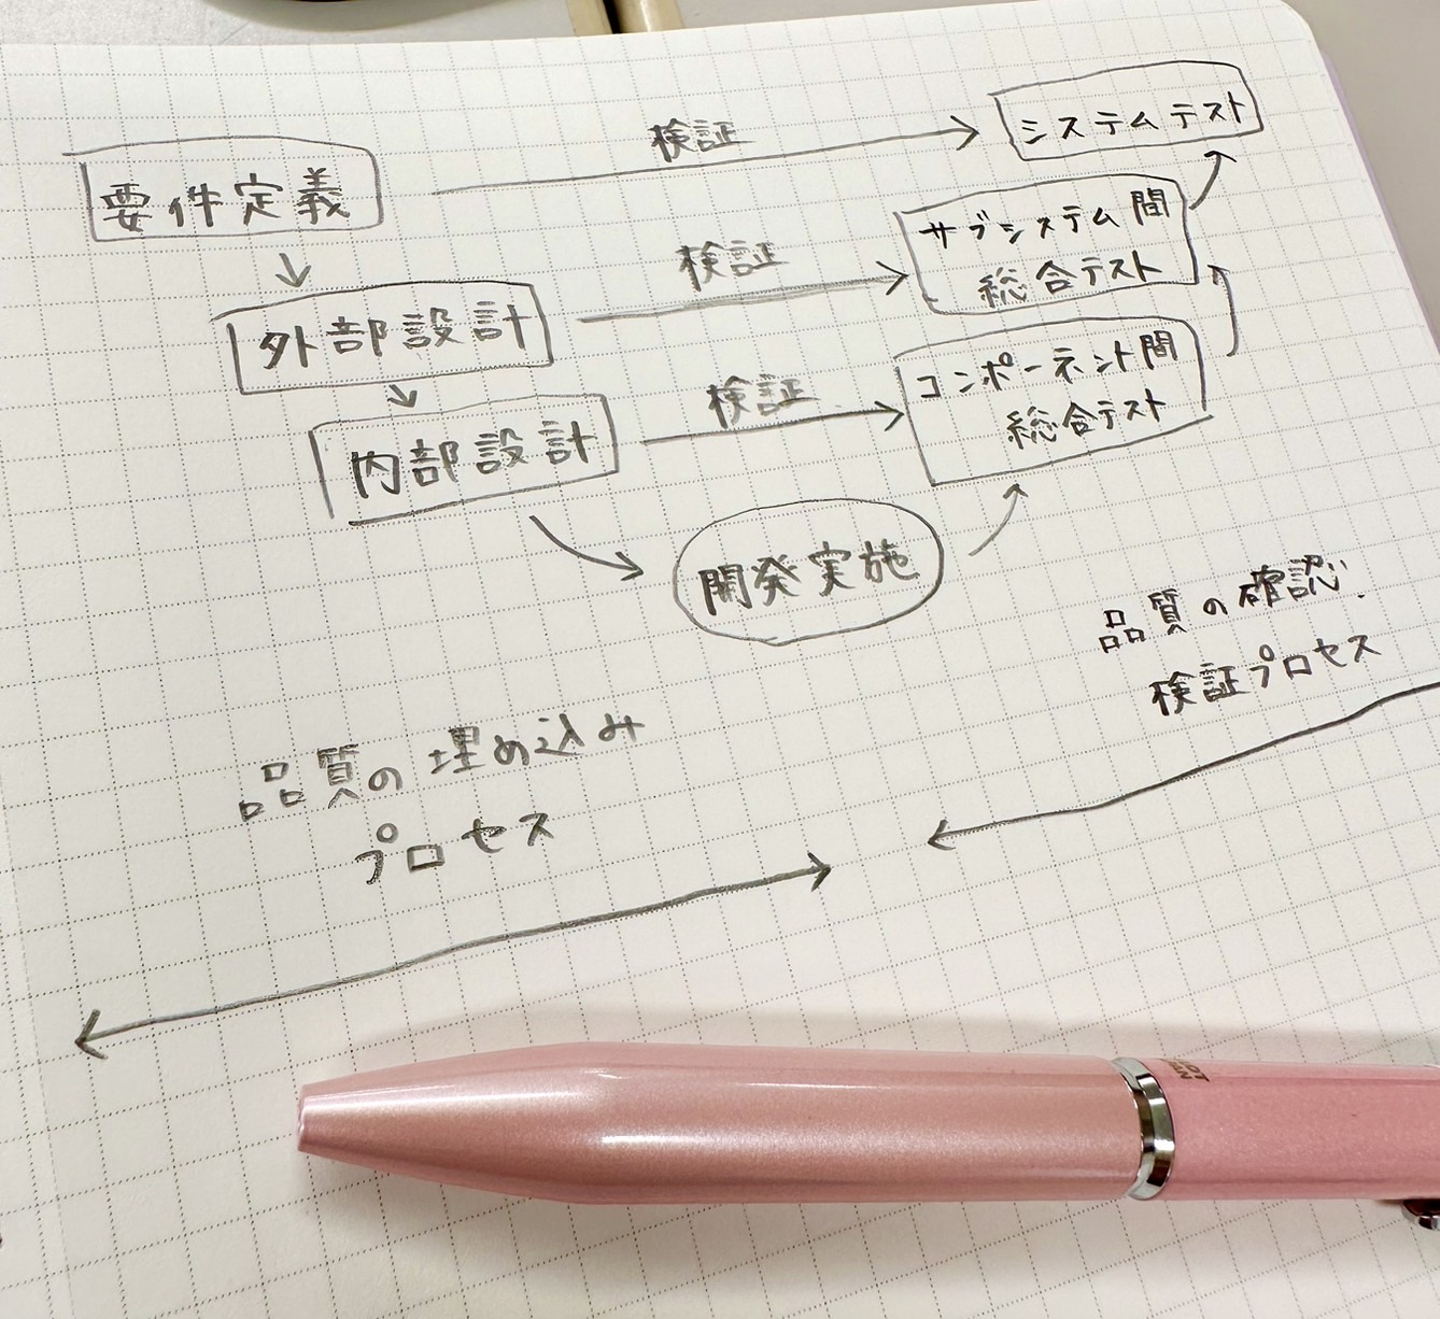 検証
システムテスト
要件定義
検証
サブシステム間
総合テスト
外部設計
検証
コンポーネント間
総合テスト
内部設計
開発実施
品質の確認.
検証プロセス
品質の埋め込み
プロセス